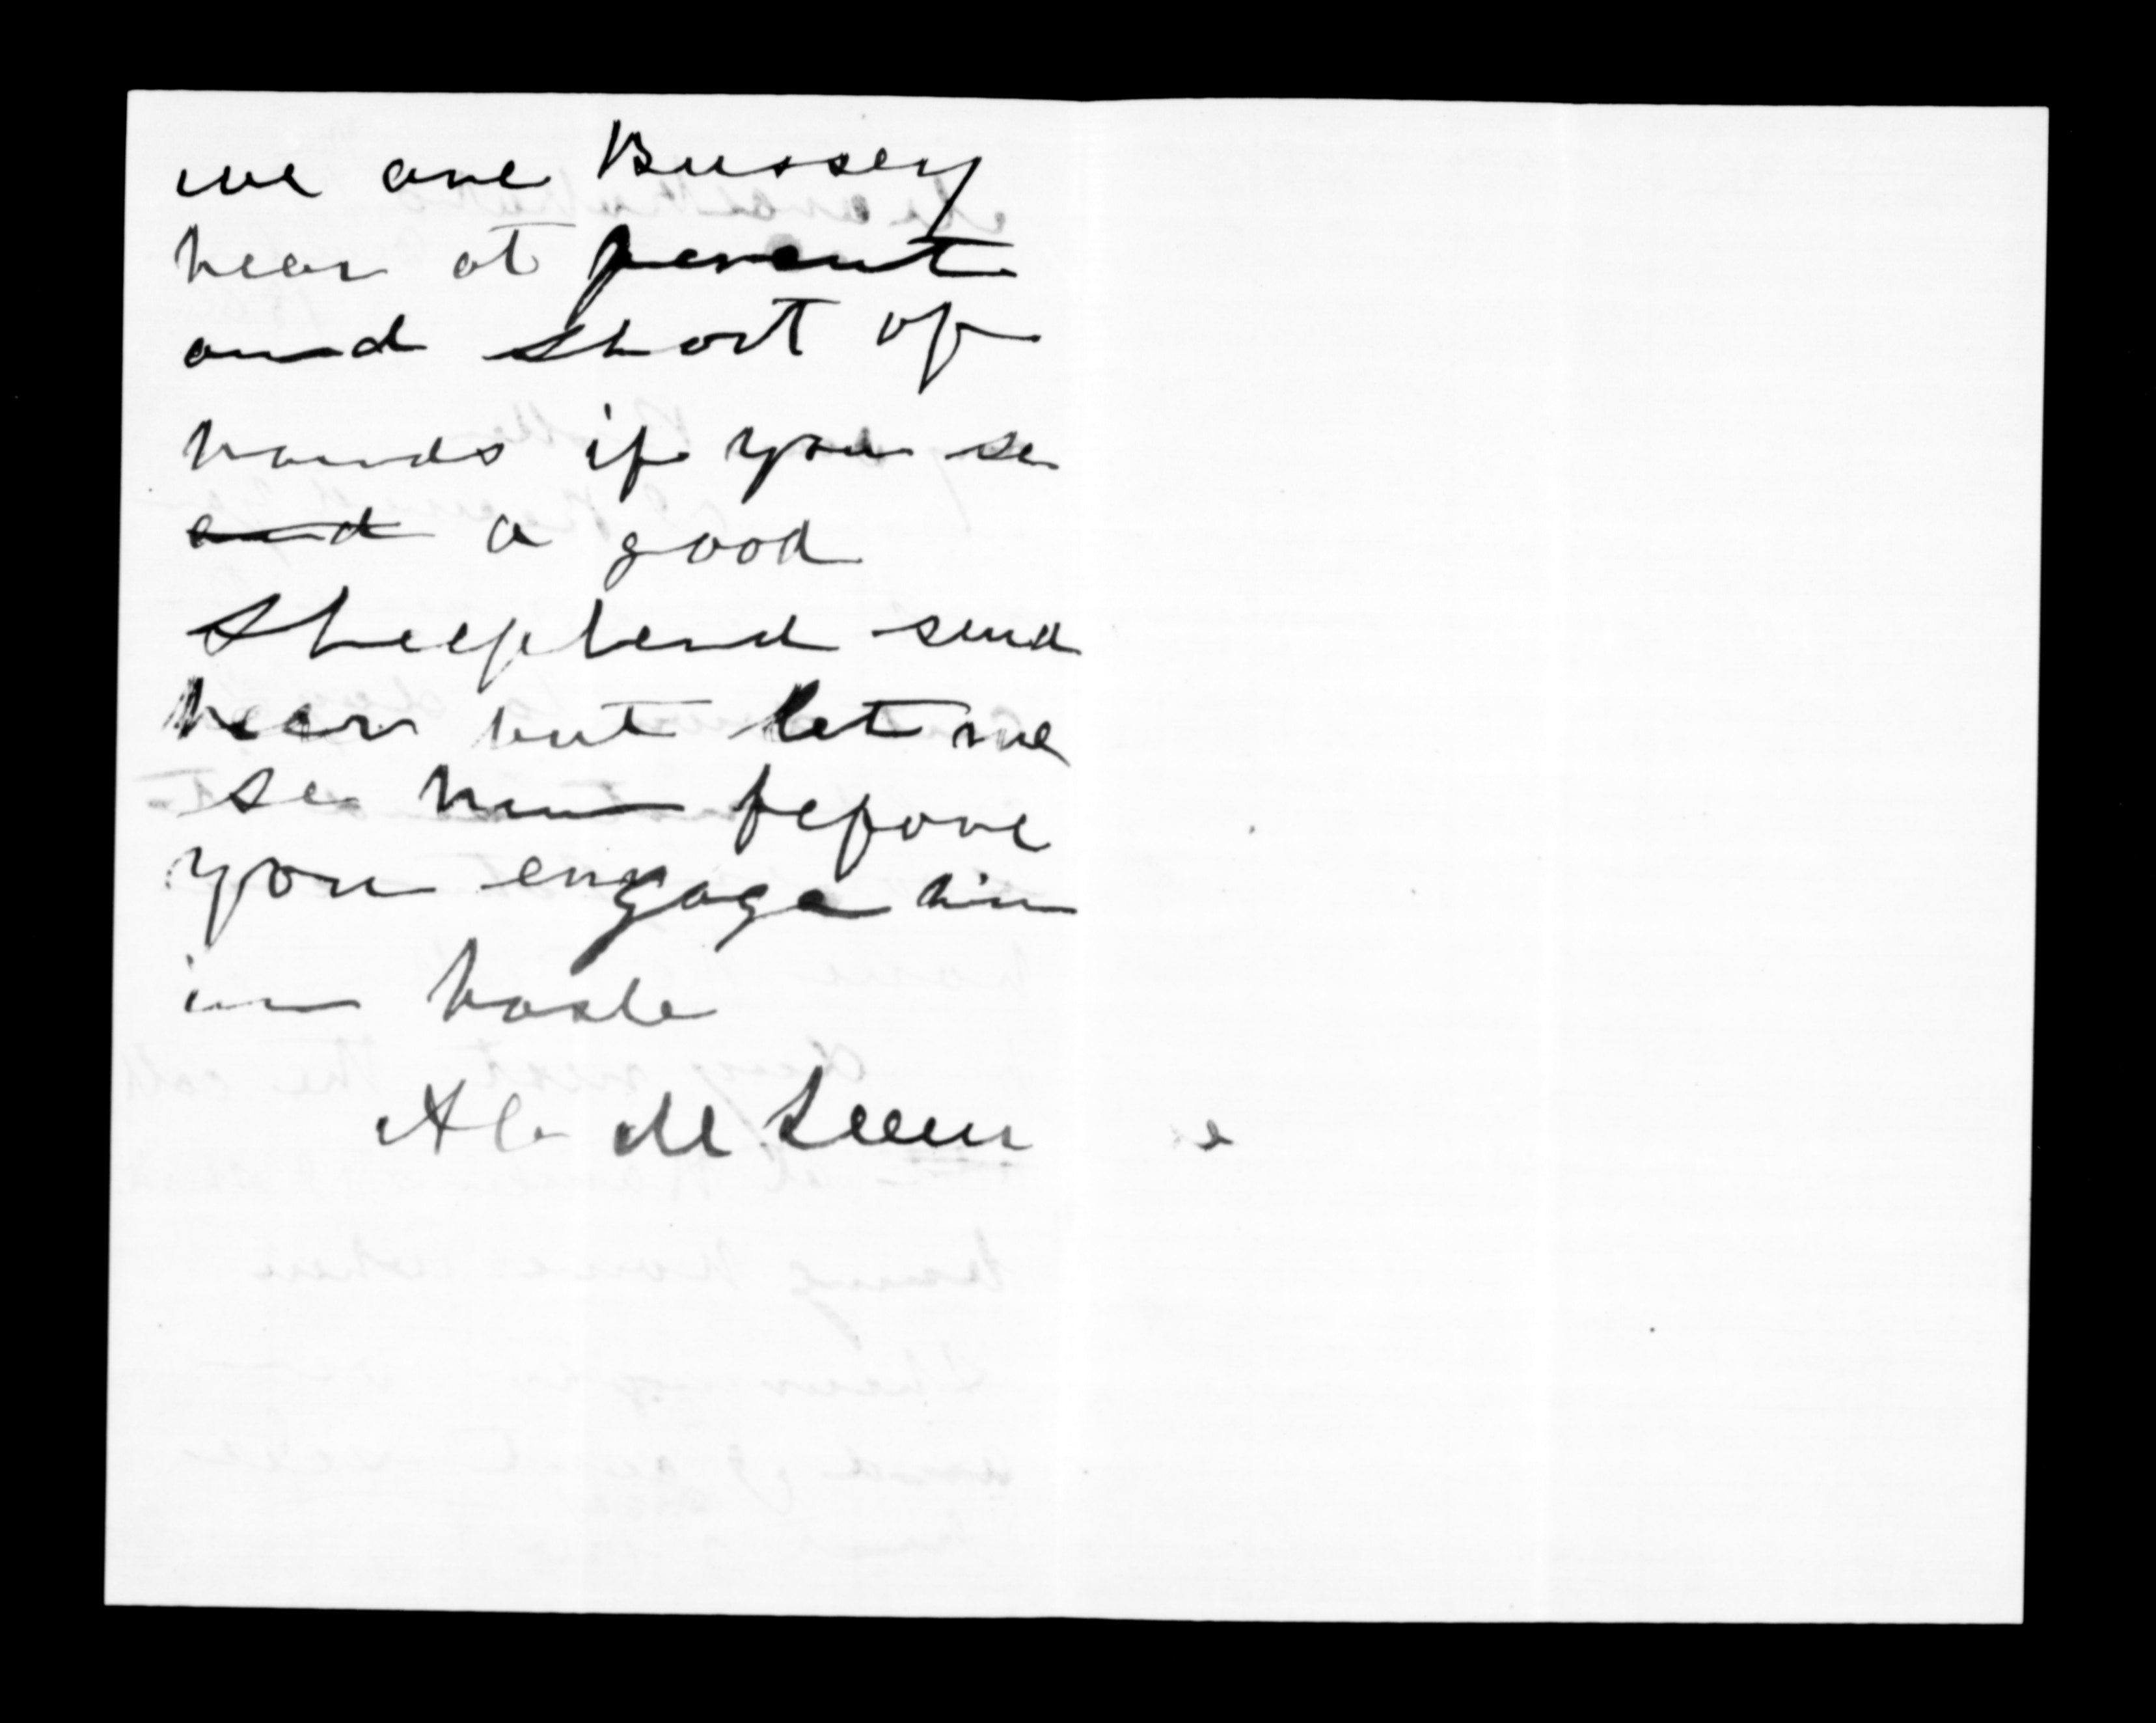 we are Bussey
hear at perent
and short of
hands if you se
and a good
Sheepherd send
hear but let me
se him fefore
you engage him
in haste